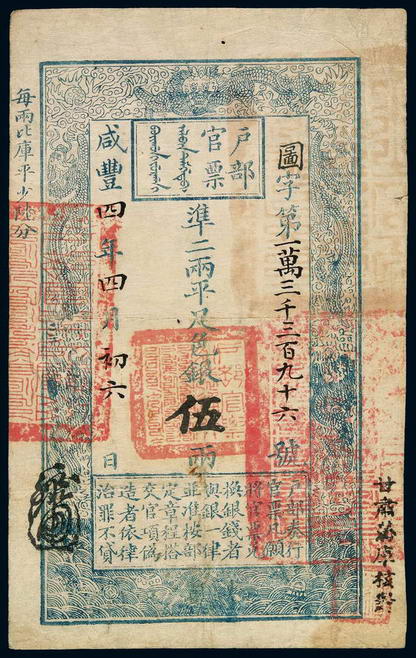 戶部
官票
圖字第一萬三千三百九十六號
準二兩平足色銀伍兩
咸豐四年四月初六日
戶部奏行
官票凡願
將官票兌
換銀錢者
與銀一律
並準按部
定章程搭
交官項偽
造者依律
治罪不貸
每兩比庫平少陸分
甘肅藩庫核對